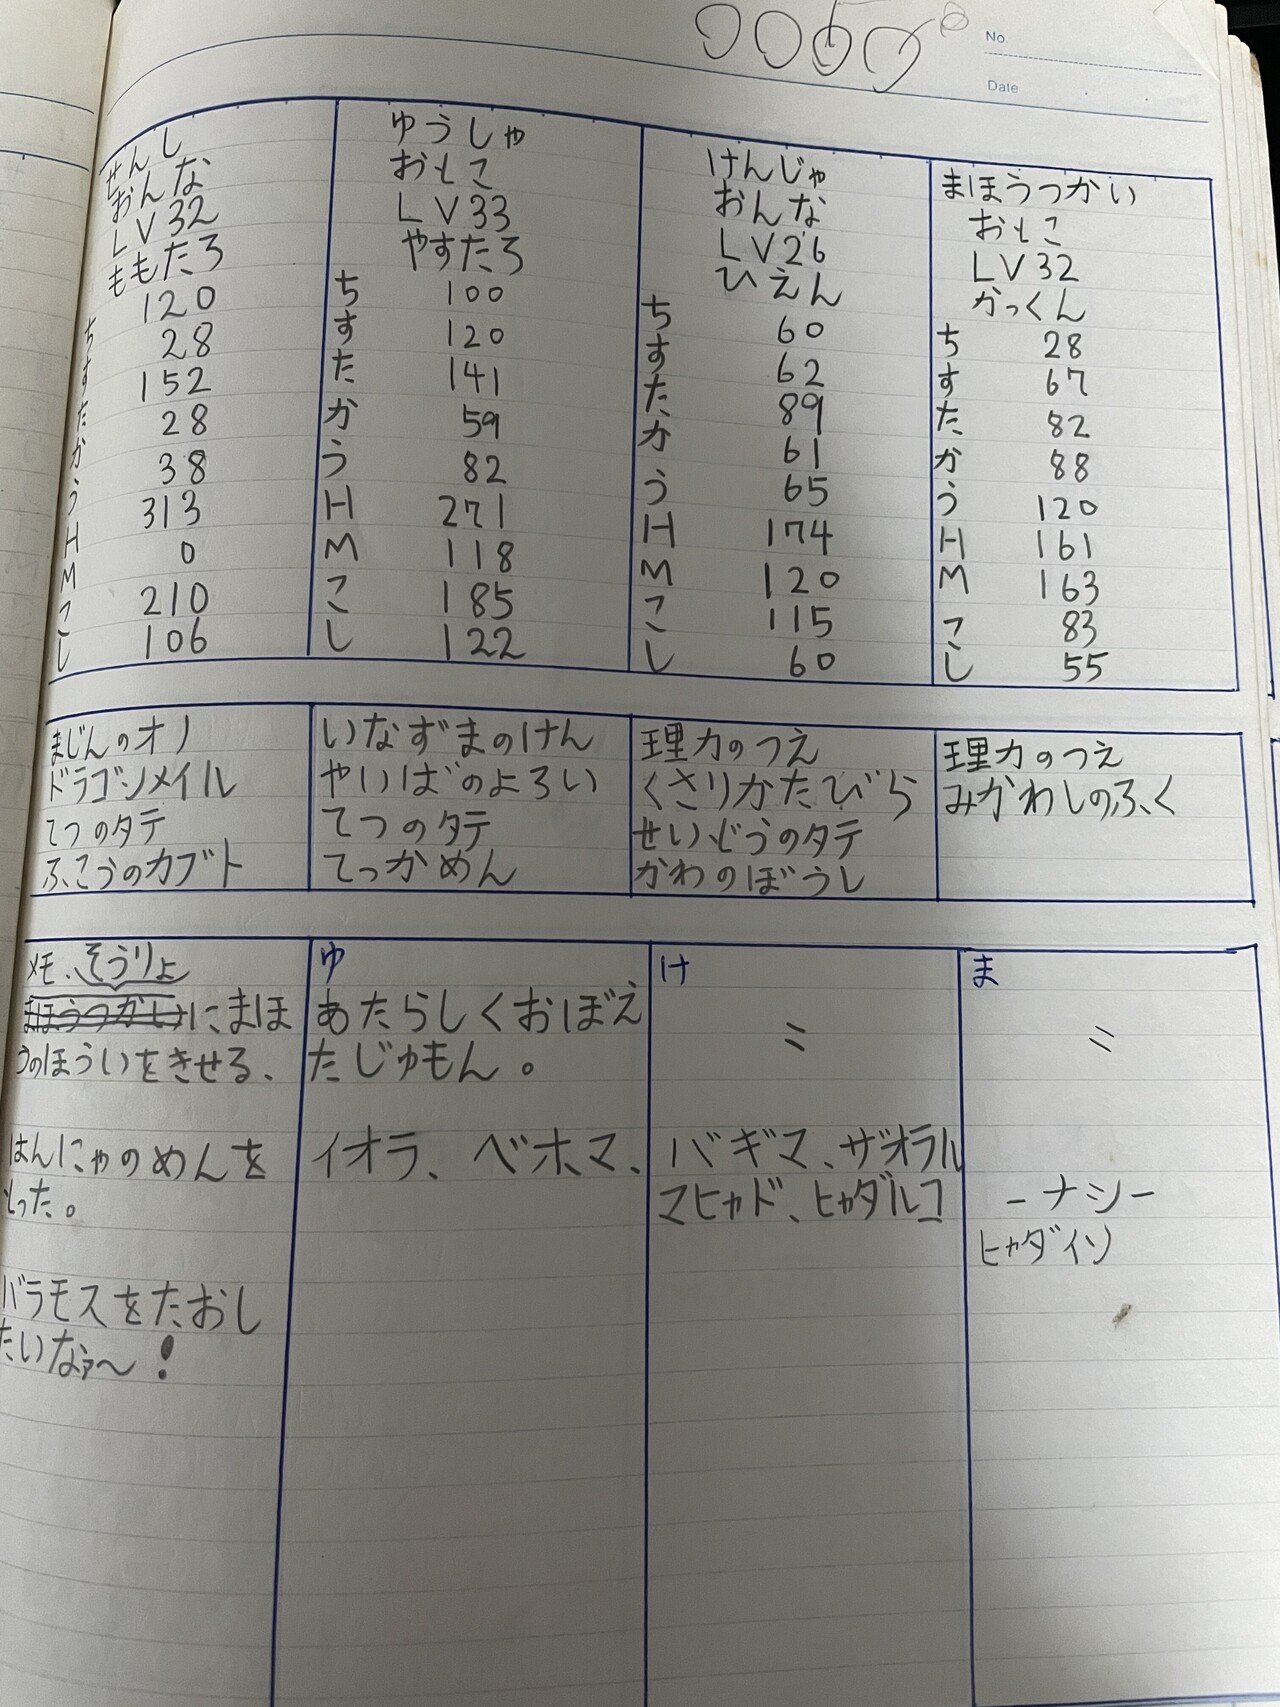 No.
Date
せんし
おんな
LV32
ももたろ
120
ち 28
す 152
た 28
か 38
う 313
H 0
M 210
こ 106
し
ゆうしゃ
おとこ
LV33
やすたろ
ち 100
す 120
た 141
か 59
う 82
H 271
M 118
こ 185
し 122
けんじゃ
おんな
LV26
ひえん
ち 60
す 62
た 89
か 61
う 65
H 174
M 120
こ 115
し 60
まほうつかい
おとこ
LV32
かっくん
ち 28
す 67
た 82
か 88
う 120
H 161
M 163
こ 83
し 55
まじんのオノ
ドラゴンメイル
てつのタテ
ふこうのカブト
いなずまのけん
やいばのよろい
てつのタテ
てっかめん
理力のつえ
くさりかたびら
せいどうのタテ
かわのぼうし
理力のつえ
みかわしのふく
メモ、そうりょ
まほうつかいにまほ
うのほういをきせる、
はんにゃのめんを
とった。
バラモスをたおし
たいなァ〜!
ゆ
あたらしくおぼえ
たじゅもん。
イオラ、ベホマ、
け
〃
バギマ、ザオラル
マヒャド、ヒャダルコ
ま
〃
ーナシー
ヒャダイン